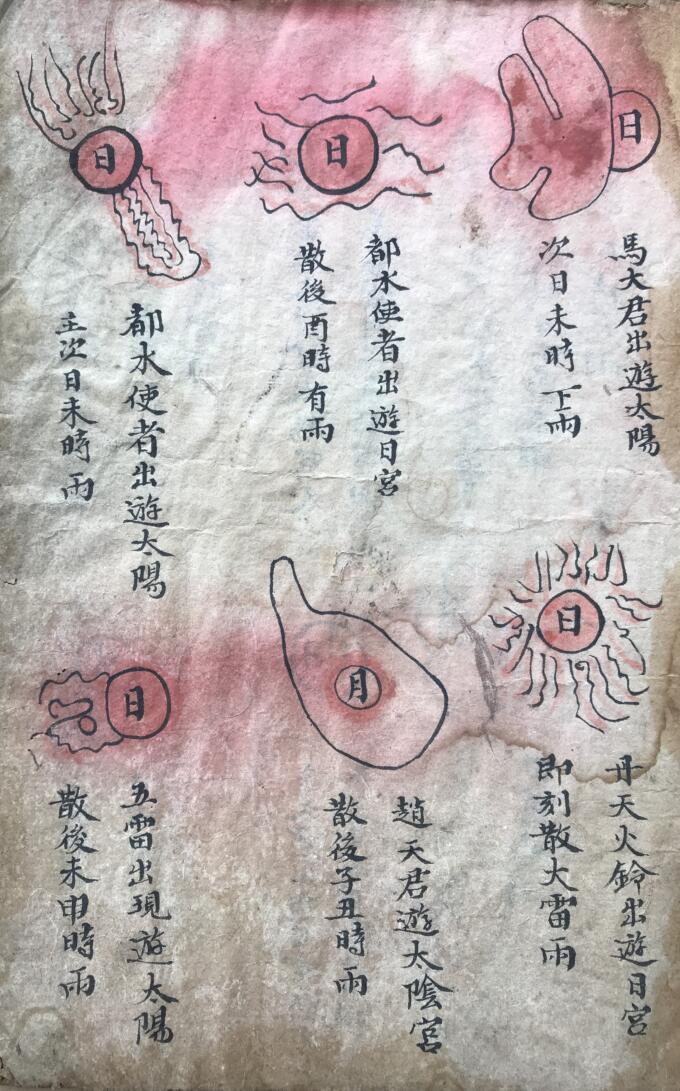 日
馬大君出遊太陽
次日未時下雨
日
都水使者出遊日宮
散後酉時有雨
日
都水使者出遊太陽
主次日未時雨
日
丹天火鈴出遊日宮
即刻散大雷雨
月
趙天君遊太陰宮
散後子丑時雨
日
五雷出現遊太陽
散後未申時雨